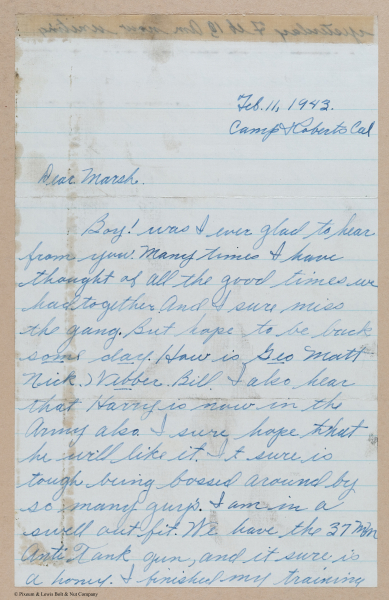 yesterday Feb 12 Am now writing
Feb. 11, 1943.
Camp Roberts Cal
Dear Marsh.
Boy! was I ever glad to hear
from you. Many times I have
thought of all the good times we
had together. And I sure miss
the gang. But hope to be back
some day. (How is Geo Matt
Nick.) Vibber. Bill. I also hear
that Harry is now in the
Army also. I sure hope that
he will like it. It sure is
tough being bossed around by
so many guy's. I am in a
swell out fit. We have the 37 MM
Anti Tank gun, and it sure is
a honey. I finished my training
© Pixson & Lewis Bolt & Nut Company